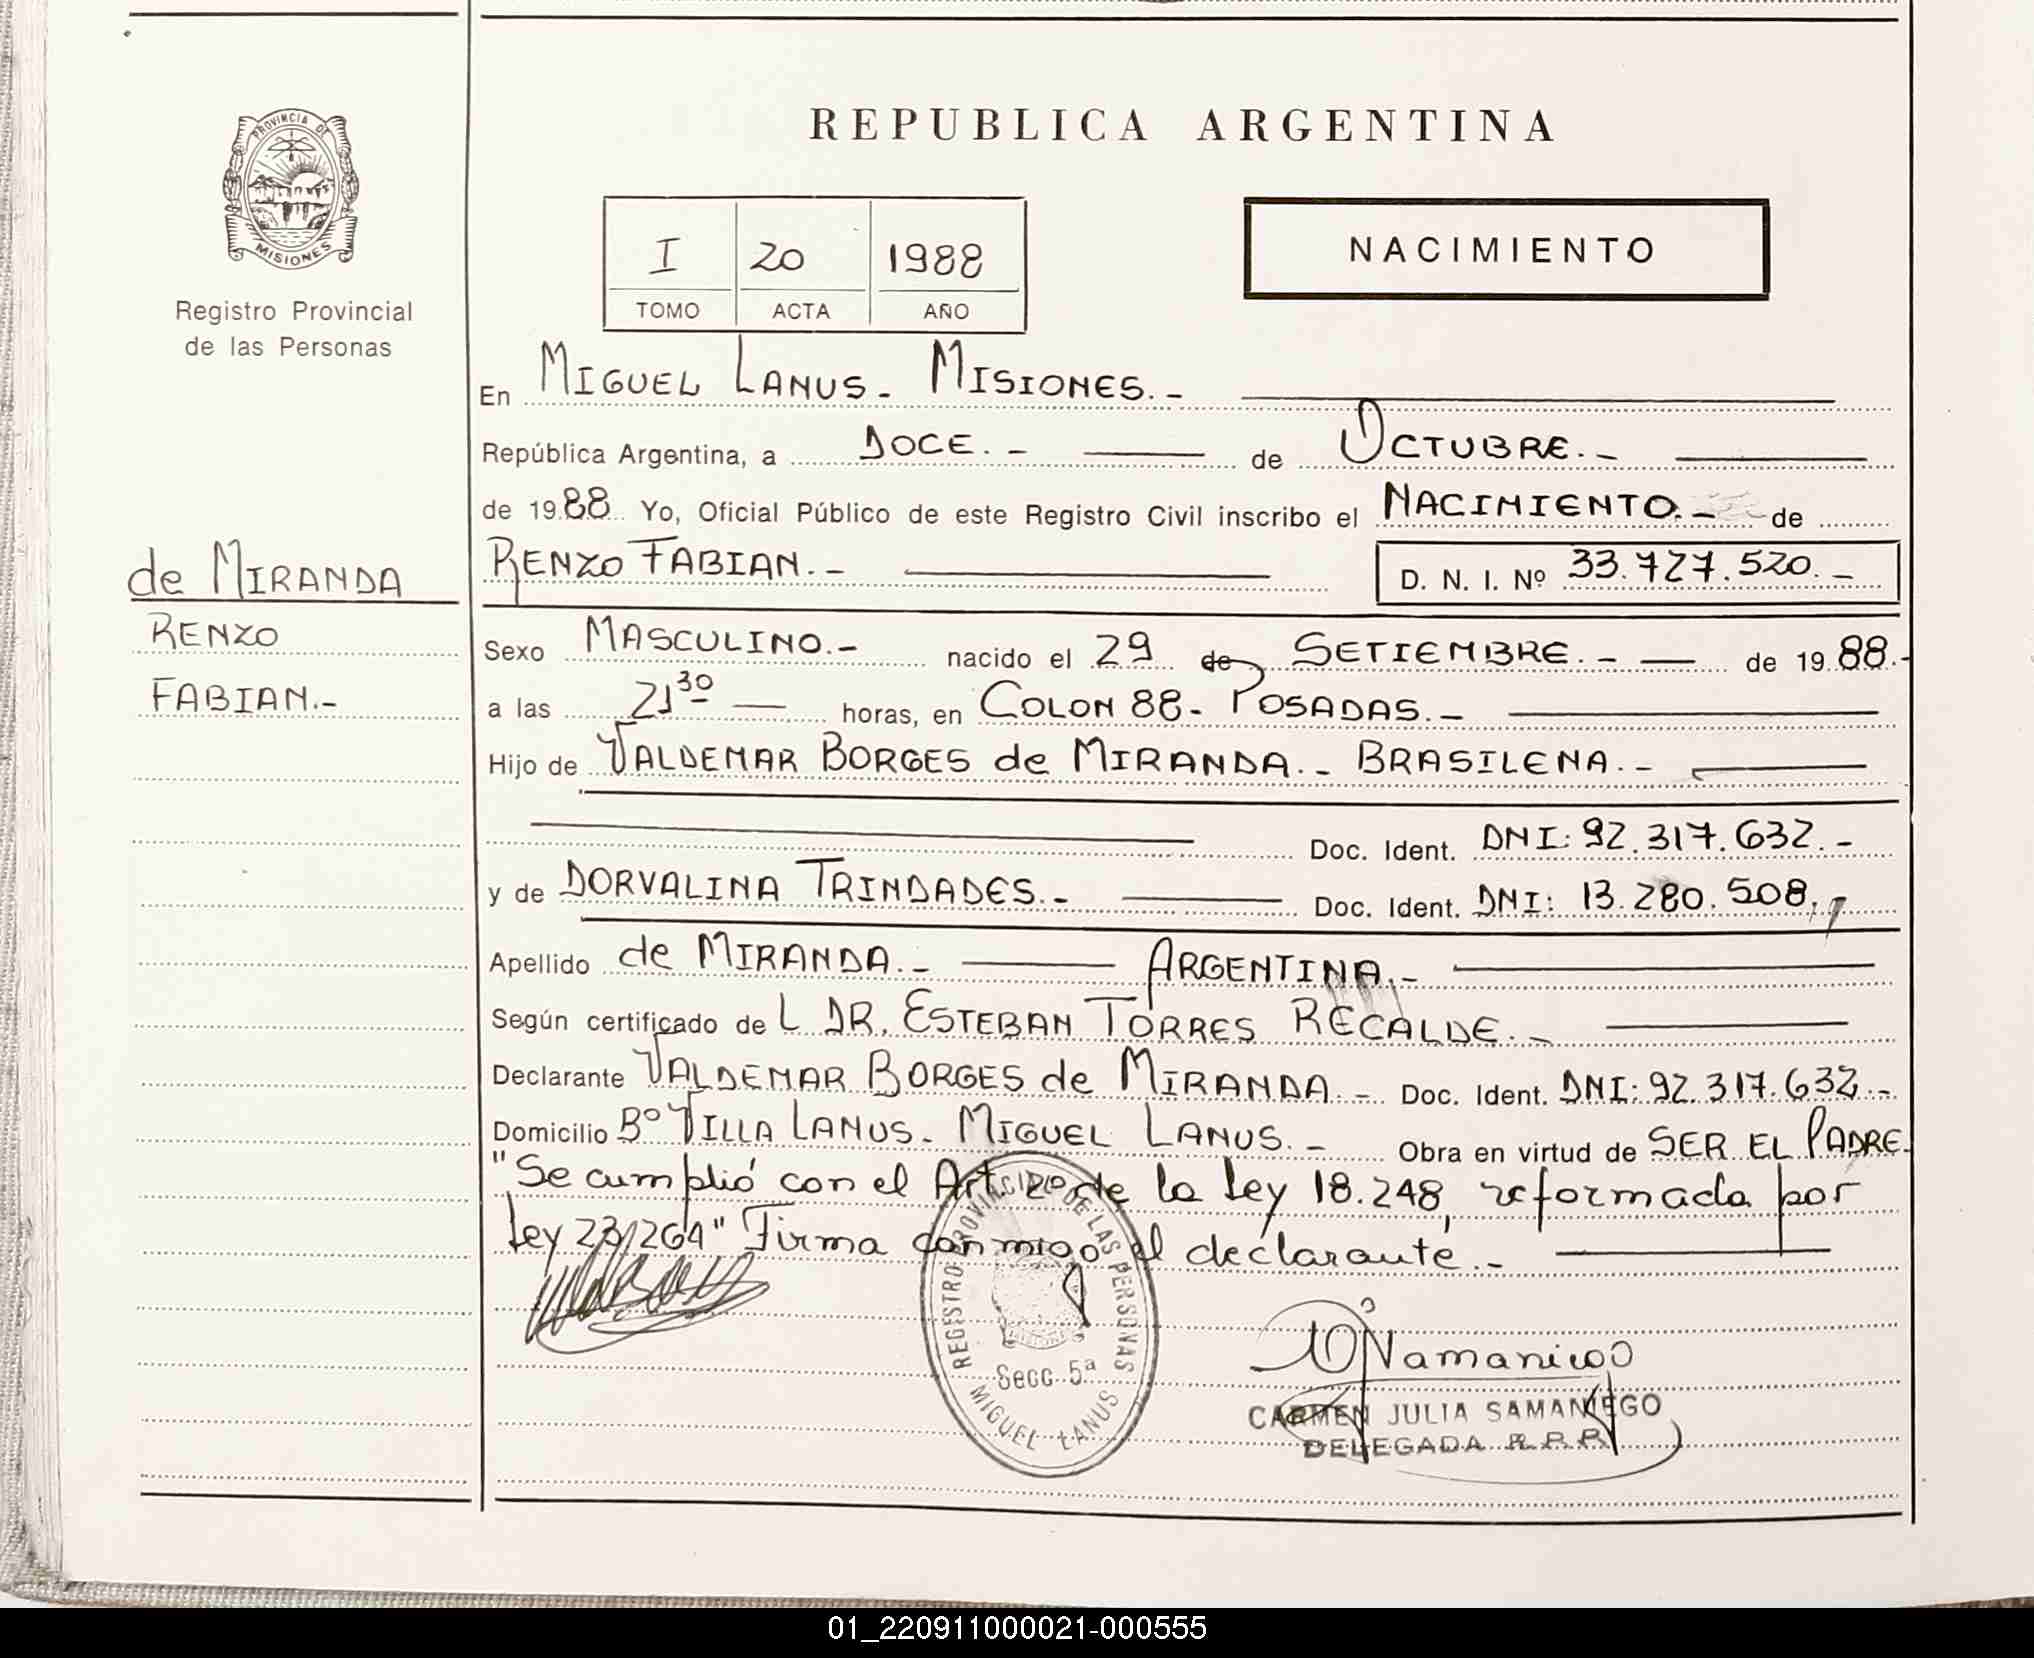 PROVINCIA DE
MISIONES
Registro Provincial
de las Personas
de MIRANDA
RENZO
FABIAN.-
REPUBLICA ARGENTINA
I 20 1988
TOMO ACTA AÑO
NACIMIENTO
En MIGUEL LANUS- MISIONES.-
República Argentina, a DOCE.- de OCTUBRE.-
de 1988 Yo, Oficial Público de este Registro Civil inscribo el NACIMIENTO.- de
RENZO FABIAN.- D. N. I. Nº 33.727.520.-
Sexo MASCULINO.- nacido el 29 de SETIEMBRE.- de 1988.-
a las 21 30 horas, en COLON 88- POSADAS.-
Hijo de VALDEMAR BORGES de MIRANDA.- BRASILENA.-
Doc. Ident. DNI: 92.317.632.-
y de DORVALINA TRINDADES.- Doc. Ident. DNI: 13.280.508,
Apellido de MIRANDA.- ARGENTINA.-
Según certificado de L DR. ESTEBAN TORRES RECALDE.-
Declarante VALDEMAR BORGES de MIRANDA.- Doc. Ident. DNI: 92.317.632.-
Domicilio Bº VILLA LANUS- MIGUEL LANUS.- Obra en virtud de SER EL PADRE.
"Se cumplió con el Art. 2º de la Ley 18.248, reformada por
Ley 23.264" Firma conmigo el declarante.-
REGISTRO PROVINCIAL DE LAS PERSONAS
Secc. 5ª
MIGUEL LANUS
CARMEN JULIA SAMANIEGO
DELEGADA R.P.P.
01_220911000021-000555